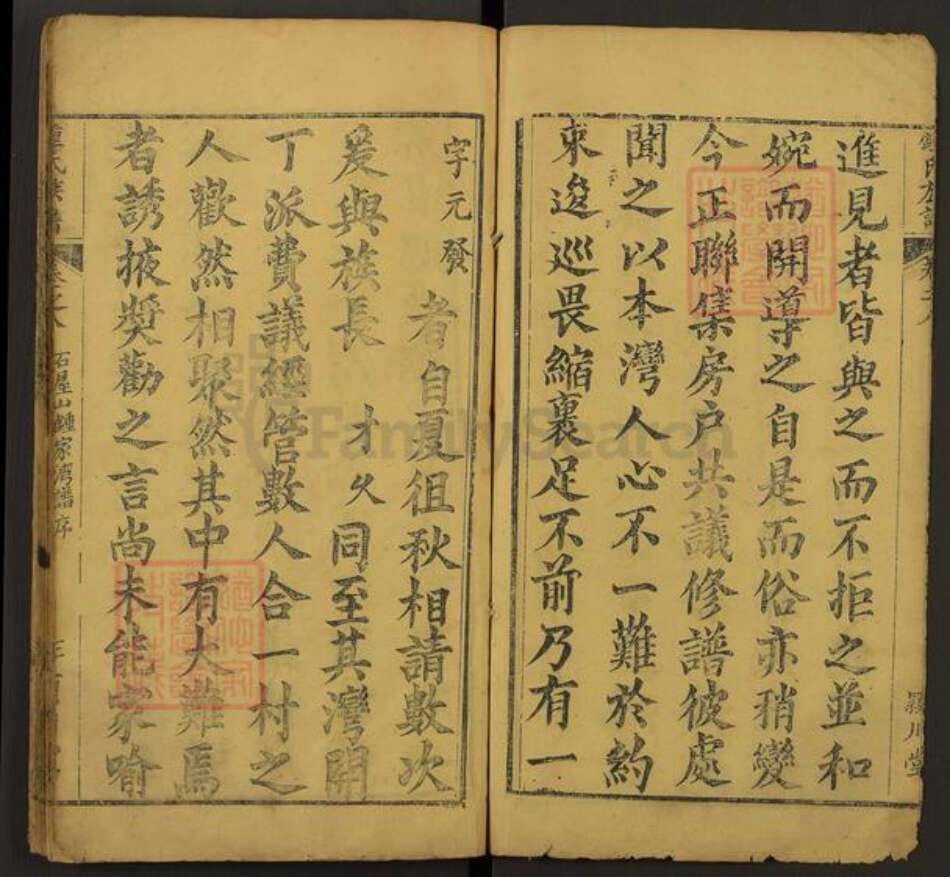 進見者皆與之而不拒之並和
婉而開導之自是而俗亦稍變
今正聯集房户共議修譜彼處
聞之以本灣人心不一難於約
束逡巡畏縮裹足不前乃有一
字元發
者自夏徂秋相請數次
爰與族長 才久同至其灣開
丁派費議經管數人合一村之
人歡然相聚然其中有大難焉
者誘掖奬勸之言尚未能家喻
鍾氏族譜
卷之八
石星山鍾家湾譜序
FamilySearch